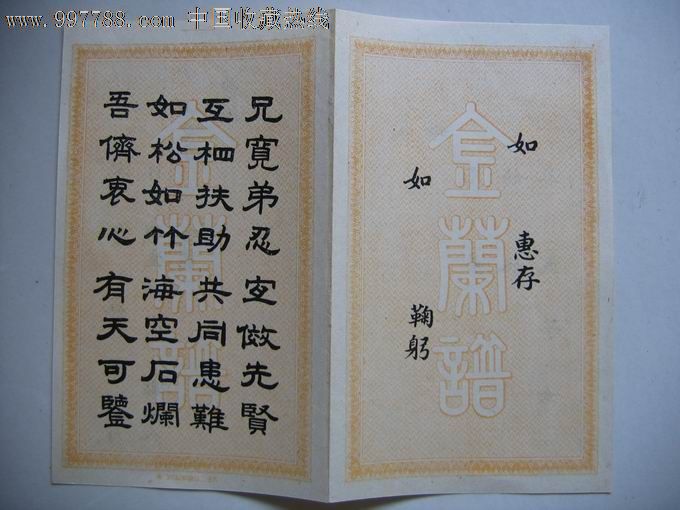 www.997788.com 中国收藏热线
金蘭譜
如 惠存
如 鞠躬
金蘭譜
兄寬弟忍 倣先賢
互相扶助共同患難
如松如竹海空石爛
吾儕衷心有天可鑒